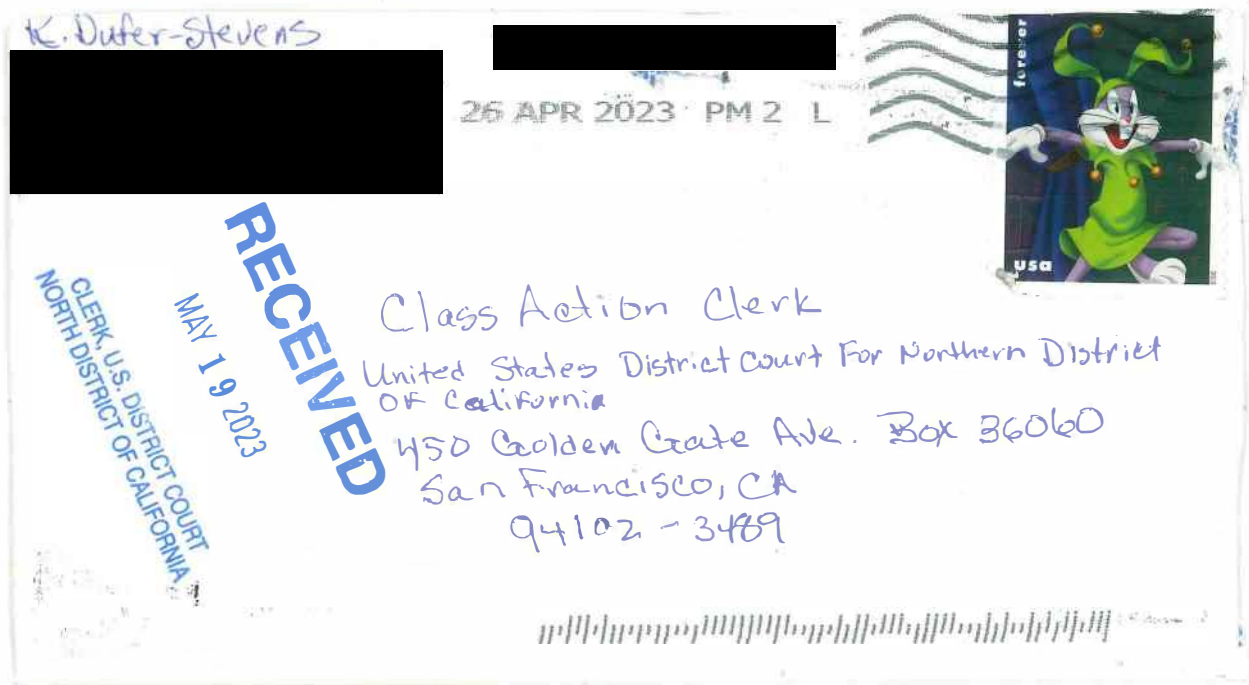 K. Dufer-Stevens
26 APR 2023 PM 2 L
forever
usa
RECEIVED
MAY 19 2023
CLERK, U.S. DISTRICT COURT
NORTH DISTRICT OF CALIFORNIA
Class Action Clerk
United States District Court For Northern District
OF California
450 Golden Gate Ave. Box 36060
San Francisco, CA
94102-3489